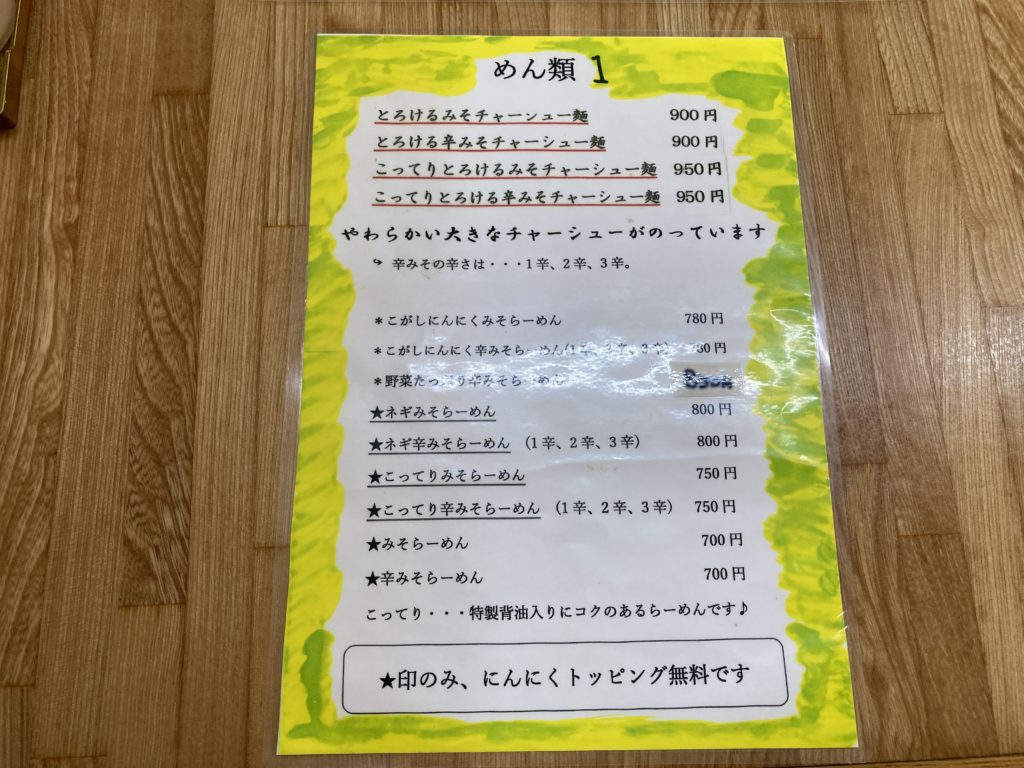 めん類 1
とろけるみそチャーシュー麺 900円
とろける辛みそチャーシュー麺 900円
こってりとろけるみそチャーシュー麺 950円
こってりとろける辛みそチャーシュー麺 950円
やわらかい大きなチャーシューがのっています
辛みその辛さは・・・1辛、2辛、3辛。
*こがしにんにくみそらーめん 780円
*こがしにんにく辛みそらーめん(1辛、2辛、3辛) 780円
*野菜たっぷり辛みそらーめん 850円
★ネギみそらーめん 800円
★ネギ辛みそらーめん (1辛、2辛、3辛) 800円
★こってりみそらーめん 750円
★こってり辛みそらーめん (1辛、2辛、3辛) 750円
★みそらーめん 700円
★辛みそらーめん 700円
こってり・・・特製背油入りにコクのあるらーめんです♪
★印のみ、にんにくトッピング無料です